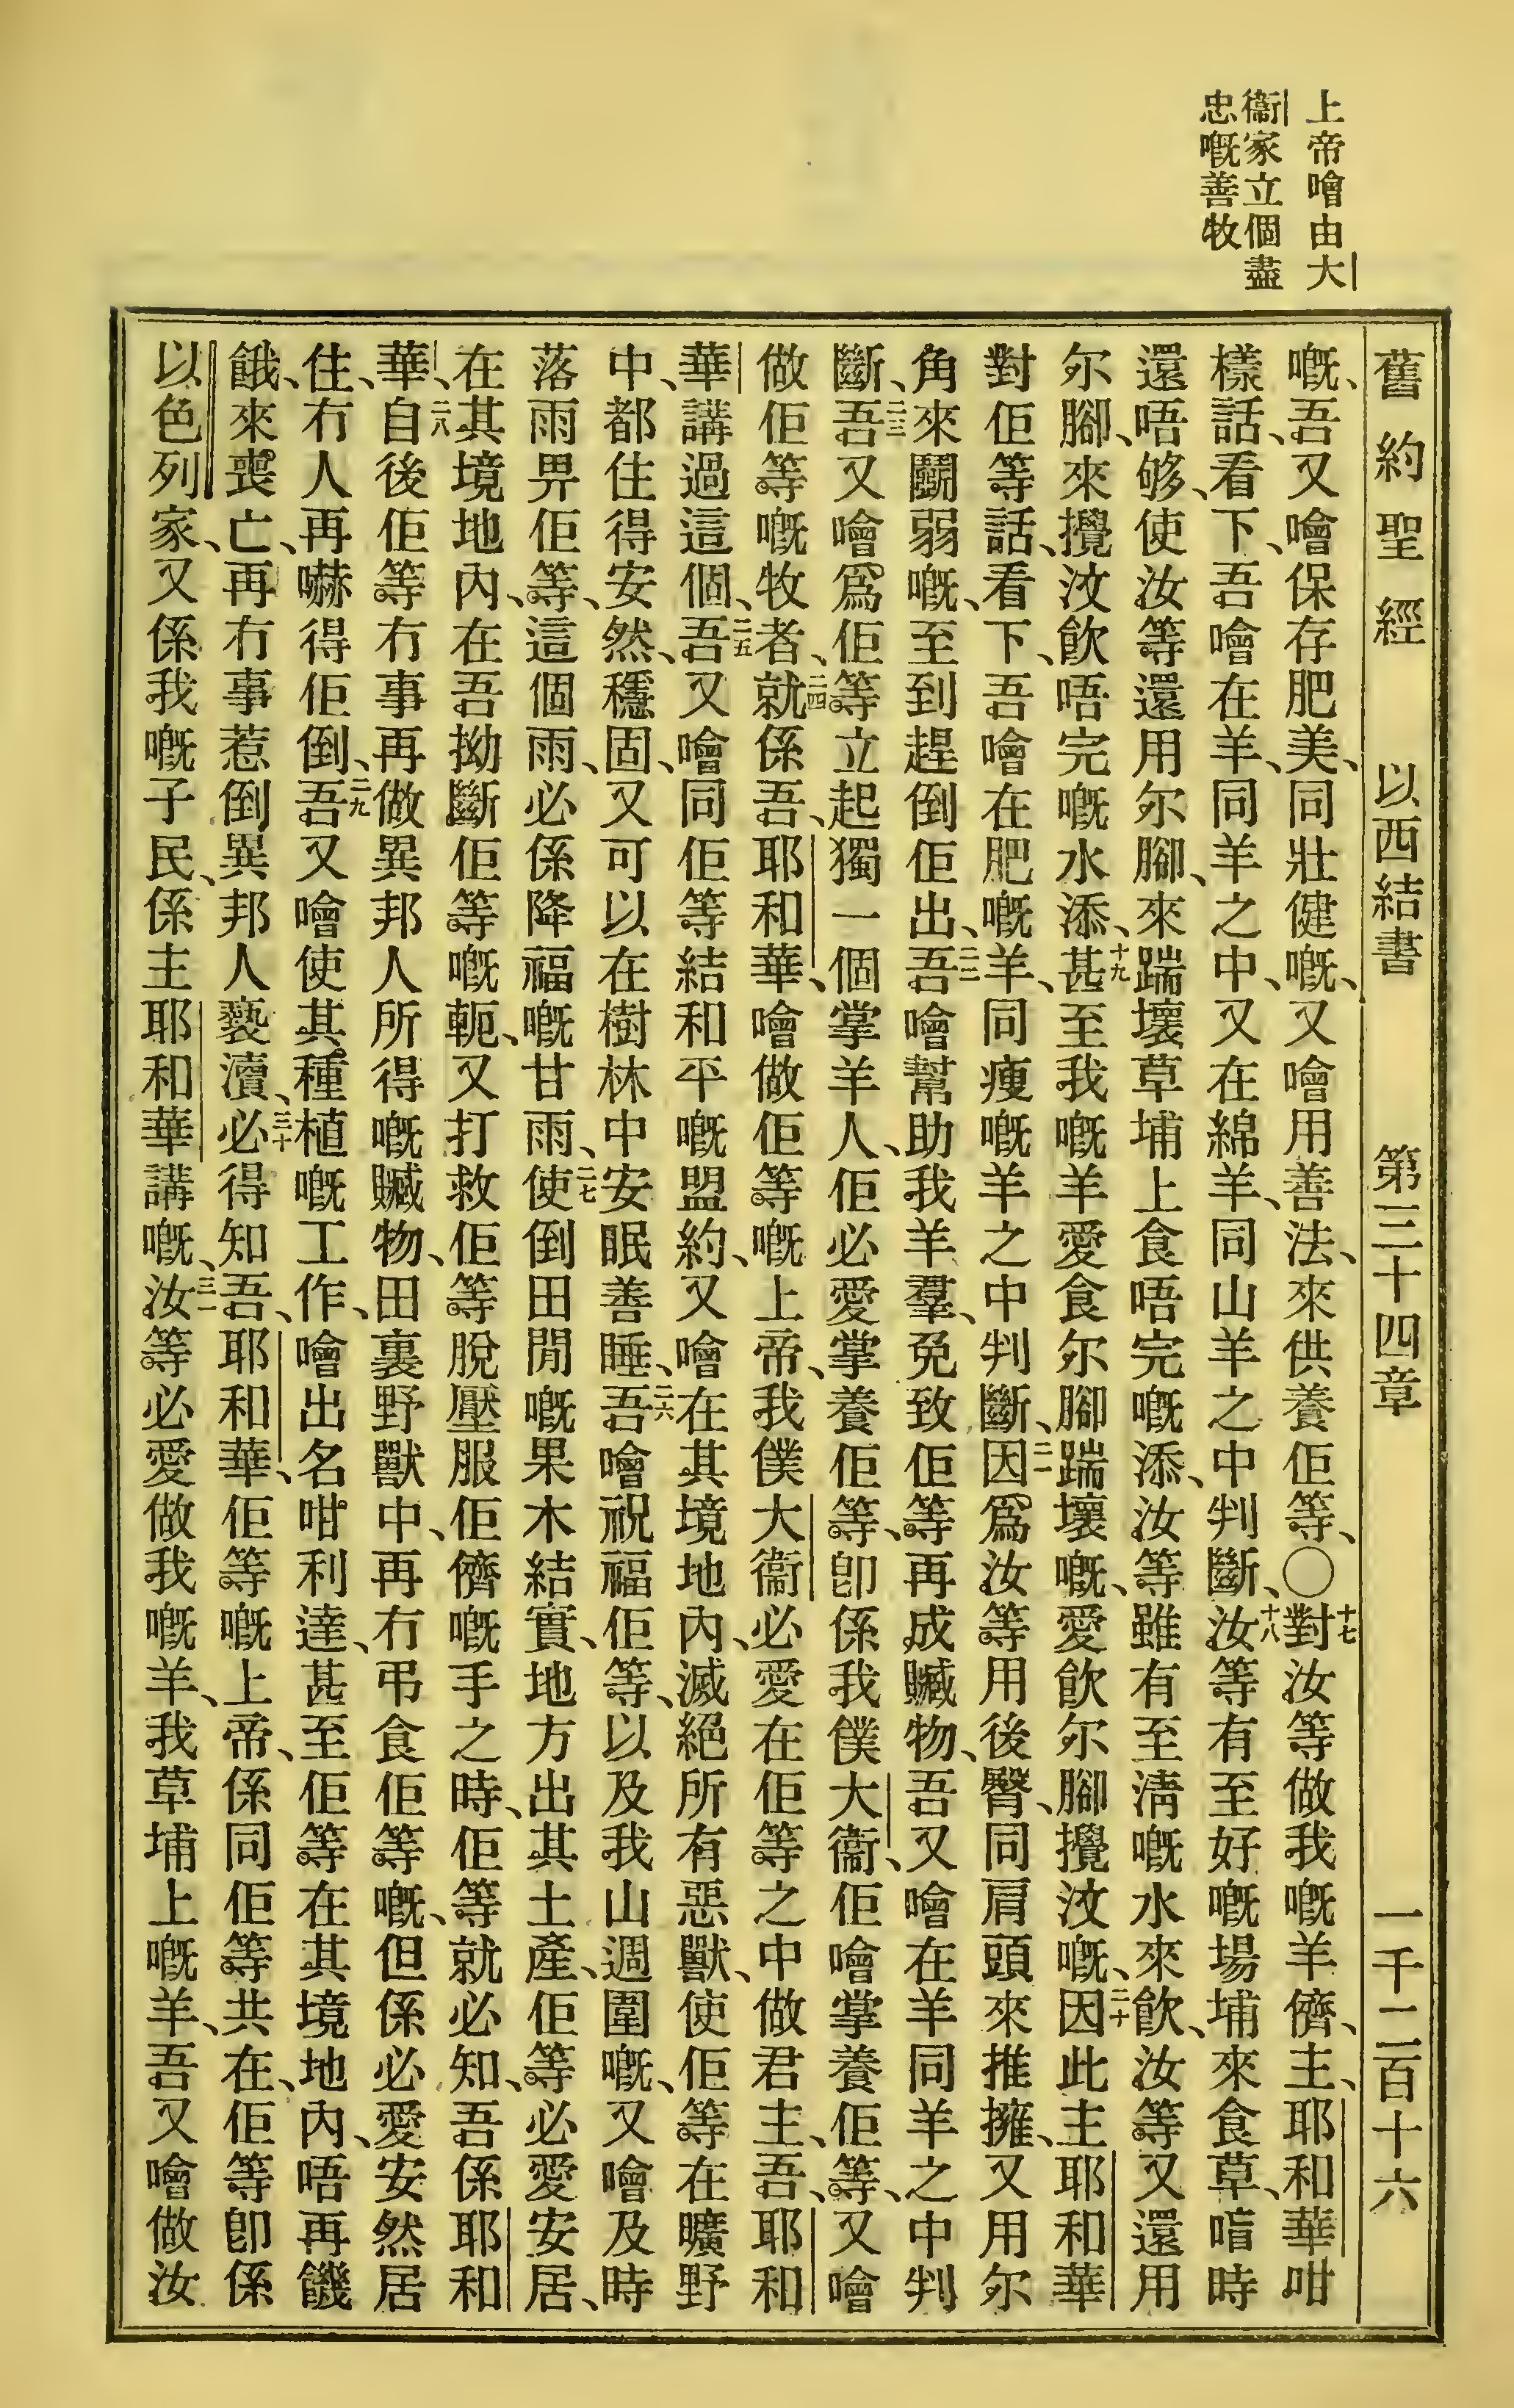 上帝噲由大
衞家立個盡
忠嘅善牧
舊約聖經 以西結書 第三十四章 一千二百十六
嘅、吾又噲保存肥美、同壯健嘅、又噲用善法、來供養佢等、〇十七對汝等做我嘅羊儕、主、耶和華咁
樣話、看下、吾噲在羊、同羊之中、又在綿羊、同山羊之中判斷、十八汝等有至好嘅場埔來食草、㖡時
還唔够、使汝等還用尔腳、來踹壞草埔上食唔完嘅添、汝等雖有至淸嘅水來飮、汝等又還用
尔腳、來攪汶飮唔完嘅水添、十九甚至我嘅羊愛食尔腳踹壞嘅、愛飮尔腳攪汶嘅、二十因此主耶和華
對佢等話、看下、吾噲在肥嘅羊、同瘦嘅羊之中判斷、二一因爲汝等用後臀、同肩頭來推擁、又用尔
角來鬭弱嘅、至到趕倒佢出、二二吾噲幫助我羊羣、免致佢等再成贓物、吾又噲在羊同羊之中判
斷、二三吾又噲爲佢等立起獨一個掌羊人、佢必愛掌養佢等、卽係我僕大衞、佢噲掌養佢等、又噲
做佢等嘅牧者、二四就係吾、耶和華、噲做佢等嘅上帝、我僕大衞必愛在佢等之中做君主、吾、耶和
華講過這個、二五吾又噲同佢等結和平嘅盟約、又噲在其境地內、滅絕所有惡獸、使佢等在曠野
中、都住得安然、穩固、又可以在樹林中安眠善睡、二六吾噲祝福佢等、以及我山週圍嘅、又噲及時
落雨畀佢等、這個雨、必係降福嘅甘雨、二七使倒田閒嘅果木結實、地方出其土產、佢等必愛安居、
在其境地內、在吾拗斷佢等嘅軛、又打救佢等脫壓服佢儕嘅手之時、佢等就必知、吾係耶和
華、二八自後佢等冇事再做異邦人所得嘅贓物、田裏野獸中、再冇弔食佢等嘅、但係必愛安然居
住、冇人再嚇得佢倒、二九吾又噲使其種植嘅工作、噲出名咁利達、甚至佢等在其境地內、唔再饑
餓、來喪亡、再冇事惹倒異邦人褻瀆、三十必得知吾、耶和華、佢等嘅上帝、係同佢等共在、佢等卽係
以色列家、又係我嘅子民、係主耶和華講嘅、三一汝等必愛做我嘅羊、我草埔上嘅羊、吾又噲做汝